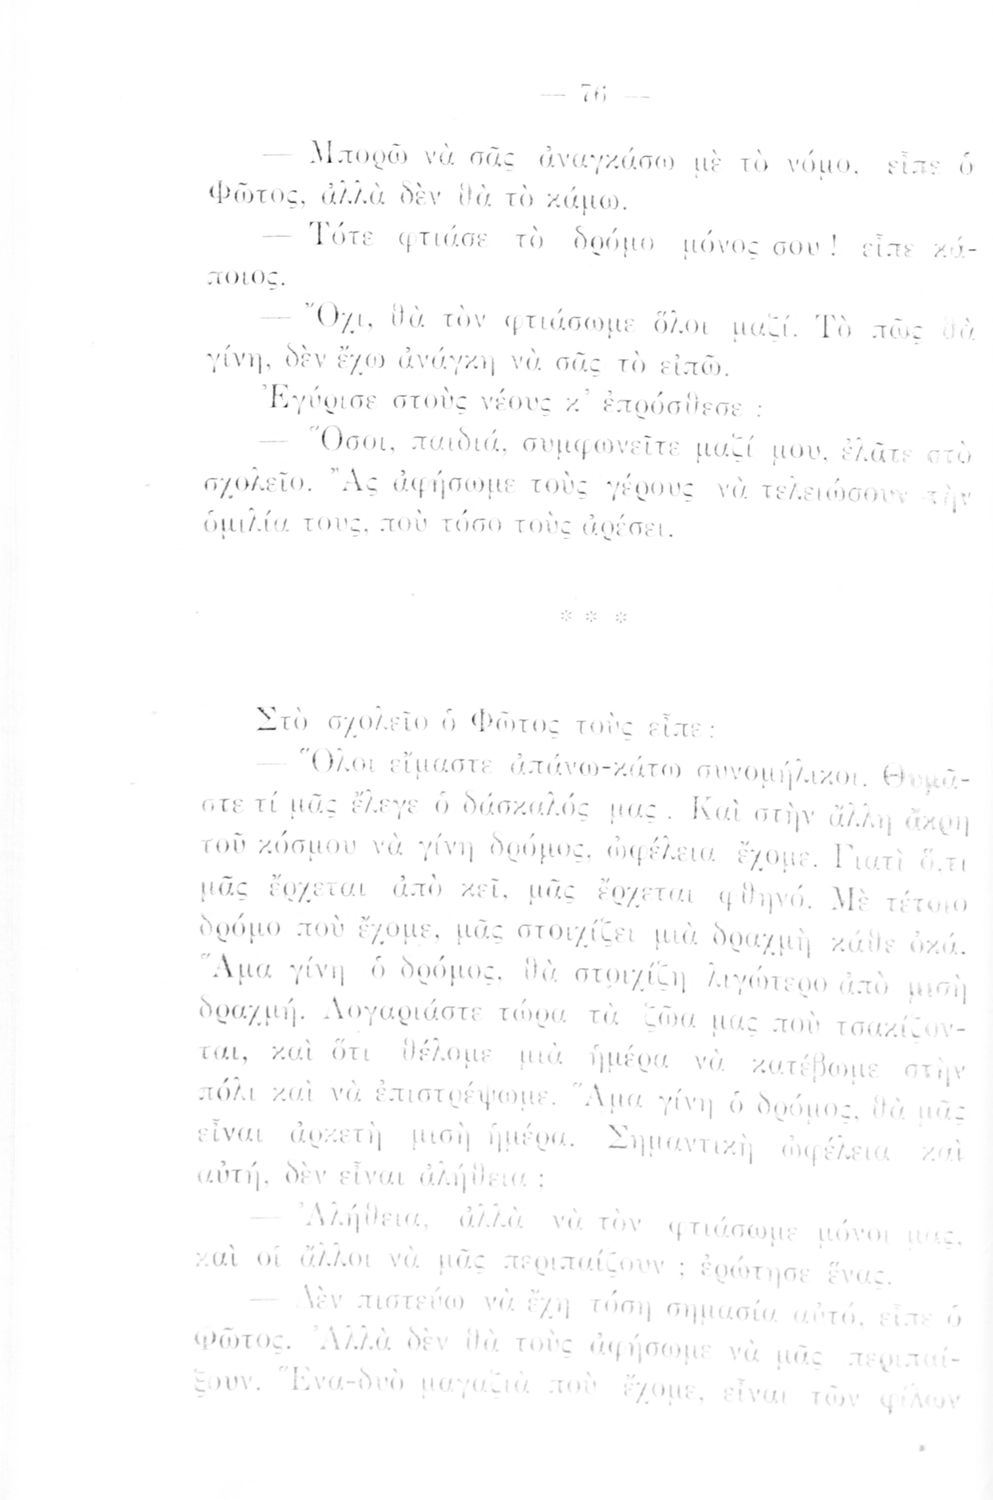 — 76 —
— Μπορῶ νὰ σᾶς ἀναγκάσω μὲ τὸ νόμο, εἶπε ὁ
Φῶτος, ἀλλὰ δὲν θὰ τὸ κάμω.
— Τότε φτιάσε τὸ δρόμο μόνος σου ! εἶπε κά-
ποιος.
— Ὄχι, θὰ τὸν φτιάσωμε ὅλοι μαζί. Τὸ πῶς θὰ
γίνη, δὲν ἔχω ἀνάγκη νὰ σᾶς τὸ εἰπῶ.
Ἐγύρισε στοὺς νέους κ’ ἐπρόσθεσε :
— Ὅσοι, παιδιά, συμφωνεῖτε μαζί μου, ἐλᾶτε στὸ
σχολεῖο. Ἂς ἀφήσωμε τοὺς γέρους νὰ τελειώσουν τὴν
ὁμιλία τους, ποὺ τόσο τοὺς ἀρέσει.
* * *
Στὸ σχολεῖο ὁ Φῶτος τοὺς εἶπε :
— Ὅλοι εἴμαστε ἀπάνω-κάτω συνομήλικοι. Θυμᾶ-
στε τί μᾶς ἔλεγε ὁ δάσκαλός μας . Καὶ στὴν ἄλλη ἄκρη
τοῦ κόσμου νὰ γίνη δρόμος, ὠφέλεια ἔχομε. Γιατὶ ὅ,τι
μᾶς ἔρχεται ἀπὸ κεῖ, μᾶς ἔρχεται φθηνό. Μὲ τέτοιο
δρόμο ποὺ ἔχομε, μᾶς στοιχίζει μιὰ δραχμὴ κάθε ὀκά.
Ἅμα γίνη ὁ δρόμος, θὰ στοιχίζη λιγώτερο ἀπὸ μισὴ
δραχμή. Λογαριάστε τώρα τὰ ζῶα μας ποὺ τσακίζον-
ται, καὶ ὅτι θέλομε μιὰ ἡμέρα νὰ κατέβωμε στὴν
πόλι καὶ νὰ ἐπιστρέψωμε. Ἅμα γίνη ὁ δρόμος, θὰ μᾶς
εἶναι ἀρκετὴ μισὴ ἡμέρα. Σημαντικὴ ὠφέλεια καὶ
αὐτή, δὲν εἶναι ἀλήθεια ;
— Ἀλήθεια, ἀλλὰ νὰ τὸν φτιάσωμε μόνοι μας,
καὶ οἱ ἄλλοι νὰ μᾶς περιπαίζουν ; ἐρώτησε ἕνας.
— Δὲν πιστεύω νὰ ἔχη τόση σημασία αὐτό, εἶπε ὁ
Φῶτος. Ἀλλὰ δὲν θὰ τοὺς ἀφήσωμε νὰ μᾶς περιπαί-
ξουν. Ἕνα-δυὸ μαγαζιὰ ποὺ ἔχομε, εἶναι τῶν φίλων